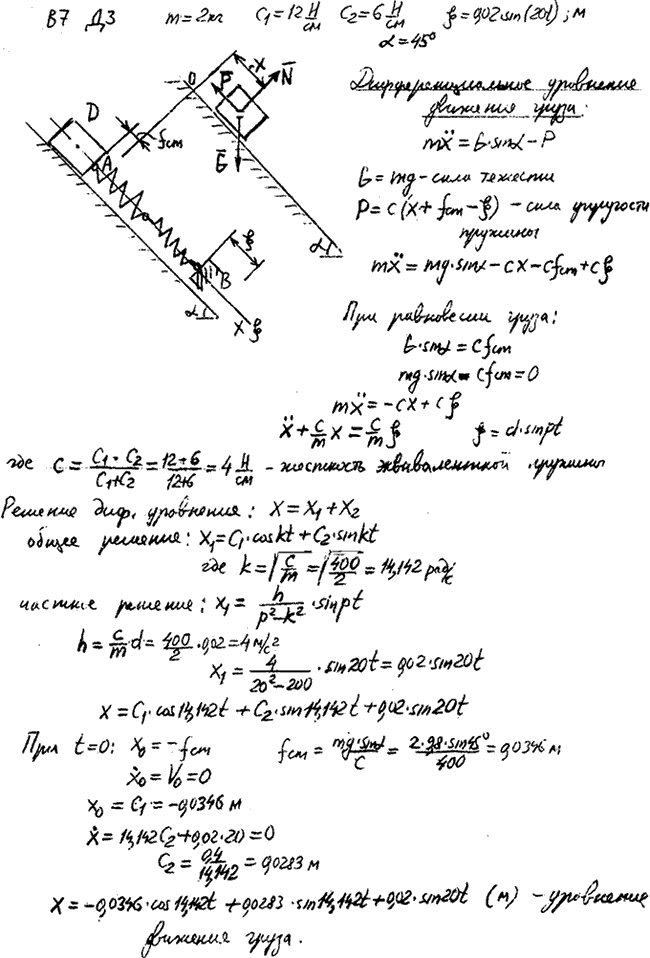 В7 Д3 m=2кг C₁=12 Н/см C₂=6 Н/см ξ=0,02 sin(20t); м
α=45°
Дифференциальное уровнение
движения груза:
mẍ = G·sinα – P
G = mg – сила тежести
P = c(x + fcт – ξ) – сила упругости
пружины
mẍ = mg·sinα – cx – cfcт + cξ
O x P̄ N̄ Ḡ D A fcт ξ B α α x ξ
При равновесии груза:
G·sinα = cfcт
mg·sinα – cfcт = 0
mẍ = –cx + cξ
ẍ + c/m x = c/m ξ ξ = d·sinpt
где c = C₁·C₂/C₁+C₂ = 12·6/12+6 = 4 Н/см – жосткость эквивалентной пружины
Решение диф. уровнения: x = x₁ + x₂
общее решение: x₁ = C₁·coskt + C₂·sinkt
где k = √c/m = √400/2 = 14,142 рад/с
частные решение: x₁ = h/p²–k² · sinpt
h = c/m·d = 400/2·0,02 = 4 м/с²
x₁ = 4/20²–200 · sin20t = 0,02·sin20t
x = C₁·cos14,142t + C₂·sin14,142t + 0,02·sin20t
При t=0: x₀ = –fcт fcт = mg·sinα/c = 2·9,8·sin45°/400 = 0,0346 м
ẋ₀ = V₀ = 0
x₀ = C₁ = –0,0346 м
ẋ = 14,142C₂ + 0,02·20 = 0
C₂ = 0,4/14,142 = 0,0283 м
x = –0,0346·cos14,142t + 0,0283·sin14,142t + 0,02·sin20t (м) – уровнение
движения груза.